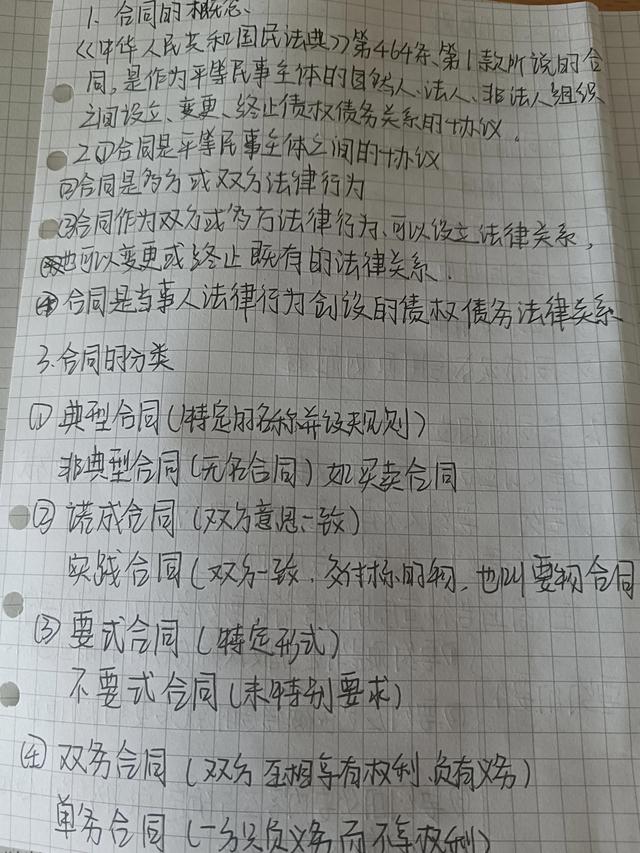 1. 合同的概念.
《中华人民共和国民法典》第464条、第1款所说的合
同,是作为平等民事主体的自然人、法人、非法人组织
之间设立、变更、终止债权债务关系的协议.
2.①合同是平等民事主体之间的协议
②合同是多方或双方法律行为
③合同作为双方或多方法律行为、可以设立法律关系,
也可以变更或终止既有的法律关系.
④合同是当事人法律行为创设的债权债务法律关系
3.合同的分类
①典型合同(特定的名称并设规则)
非典型合同(无名合同)如买卖合同
②诺成合同(双方意思一致)
实践合同(双方一致.交付标的物,也叫要物合同
③要式合同(特定形式)
不要式合同(未特别要求)
④双务合同(双方互相享有权利、负有义务)
单务合同(一方只负义务而不享权利)